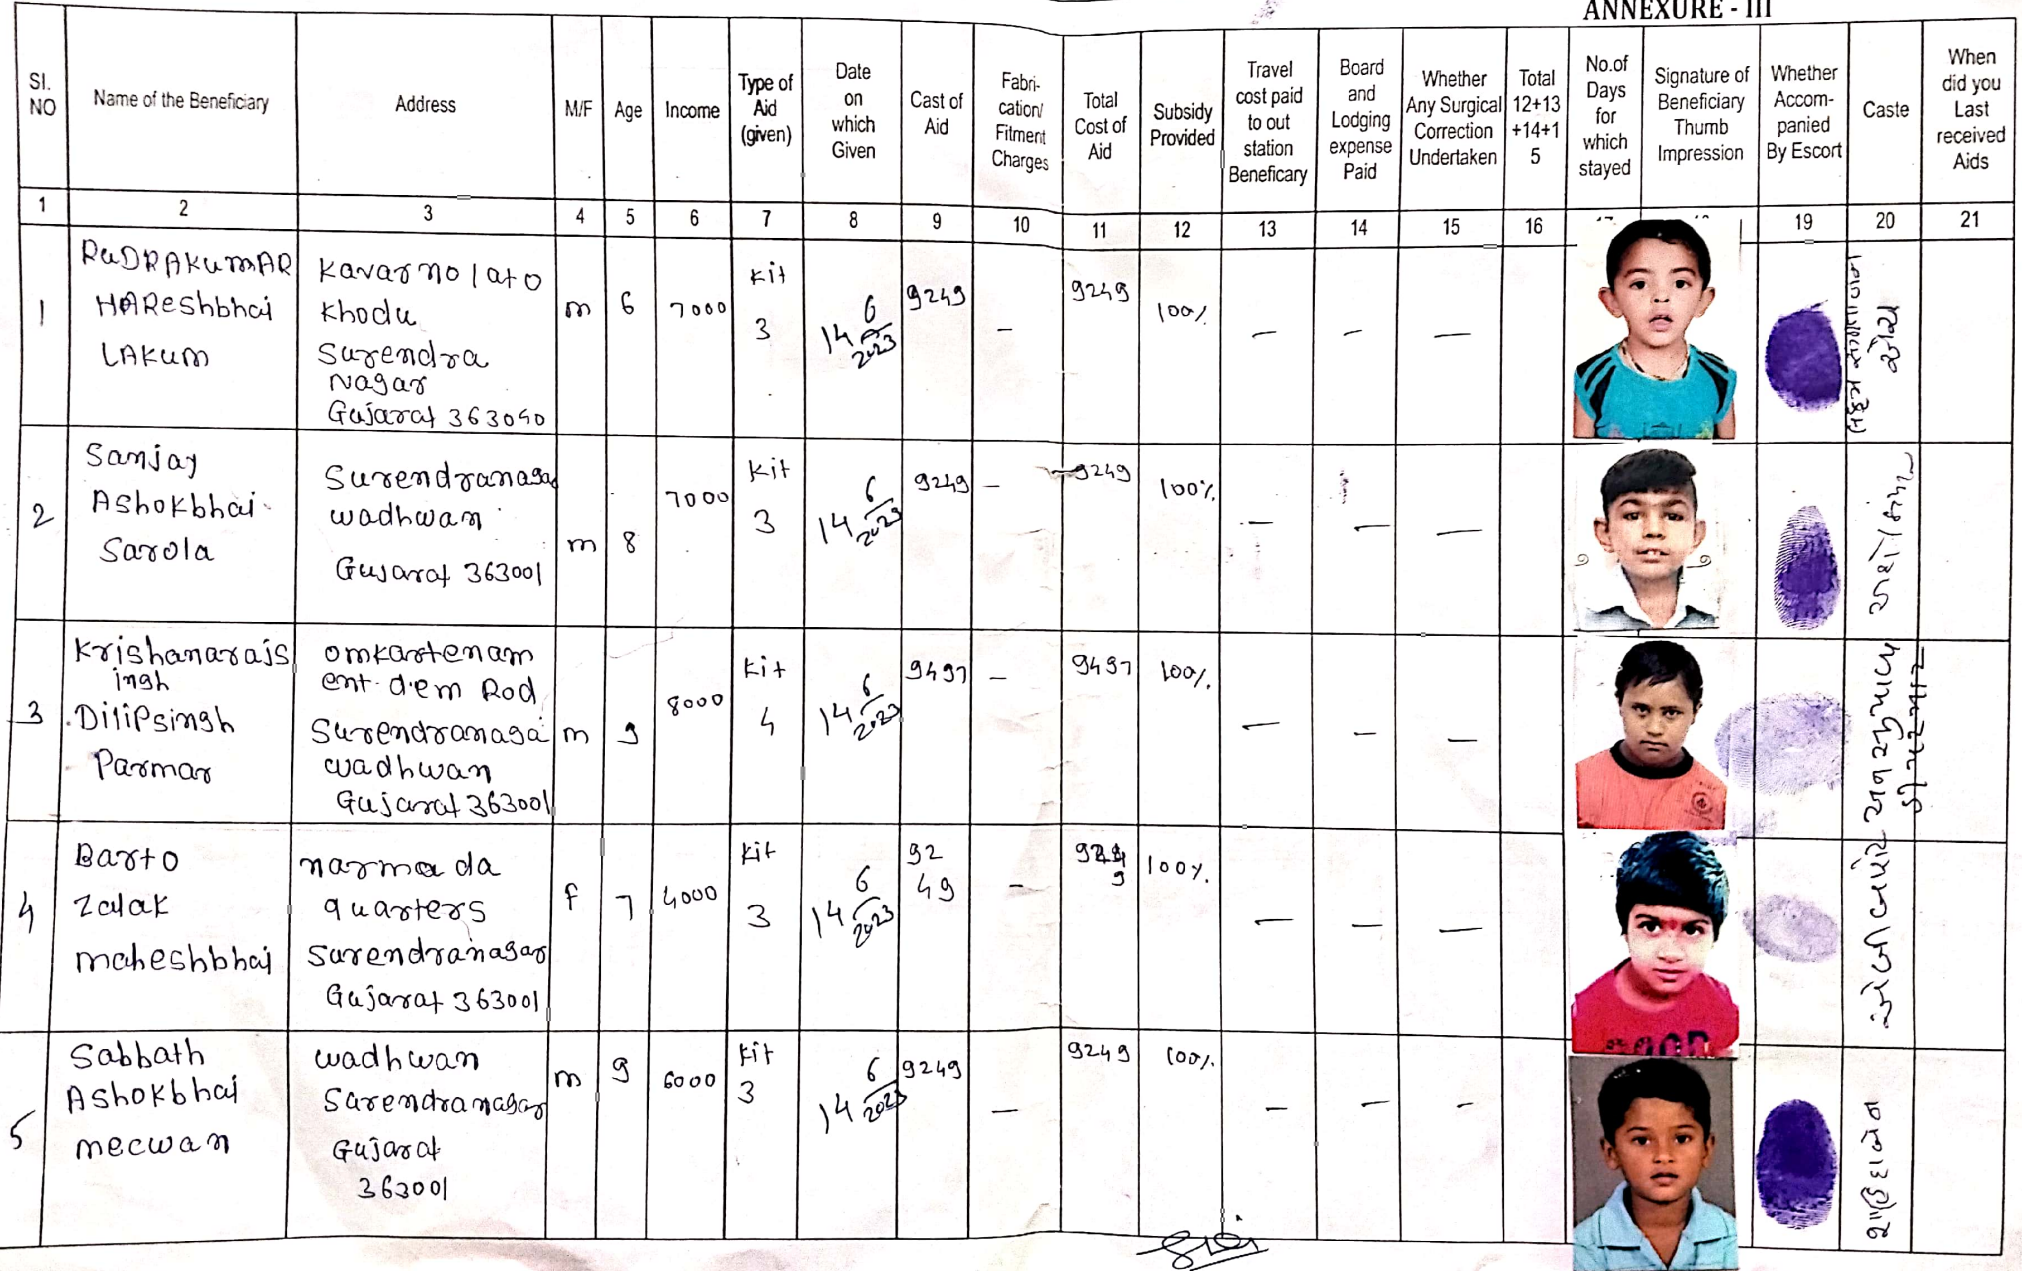 ANNEXURE - III
Sl. NO
Name of the Beneficiary
Address
M/F
Age
Income
Type of Aid (given)
Date on which Given
Cast of Aid
Fabri- cation/ Fitment Charges
Total Cost of Aid
Subsidy Provided
Travel cost paid to out station Beneficary
Board and Lodging expense Paid
Whether Any Surgical Correction Undertaken
Total 12+13 +14+1 5
No.of Days for which stayed
Signature of Beneficiary Thumb Impression
Whether Accom- panied By Escort
Caste
When did you Last received Aids
1 2 3 4 5 6 7 8 9 10 11 12 13 14 15 16 19 20 21
1
RuDRAKumAR
HAReshbhai
LAKum
Kavar no lato
Khodu
Surendra
Nagar
Gujarat 363040
m 6 7000
Kit
3
14 6 2023
9249 – 9249 100% – – –
2
Sanjay
Ashokbhai
Sarola
Surendranagar
wadhwan
Gujarat 363001
m 8 7000
Kit
3
14 6 2023
9249 – 9249 100% – – –
3
Krishanarajs
ingh
Dilipsingh
Parmar
omkartenam
ent. dem Rod
Surendranaga
wadhwan
Gujarat 363001
m 9 8000
Kit
4
14 6 2023
9497 – 9497 100% – – –
4
Barto
Zalak
maheshbhai
narmada
quarters
Surendranagar
Gujarat 363001
f 7 4000
Kit
3
14 6 2023
92
49
– 100% – – –
5
Sabbath
Ashokbhai
mecwan
wadhwan
Surendranagar
Gujarat
363001
m 9 6000
Kit
3
14 6 2023
9249 – 9249 100% – – –